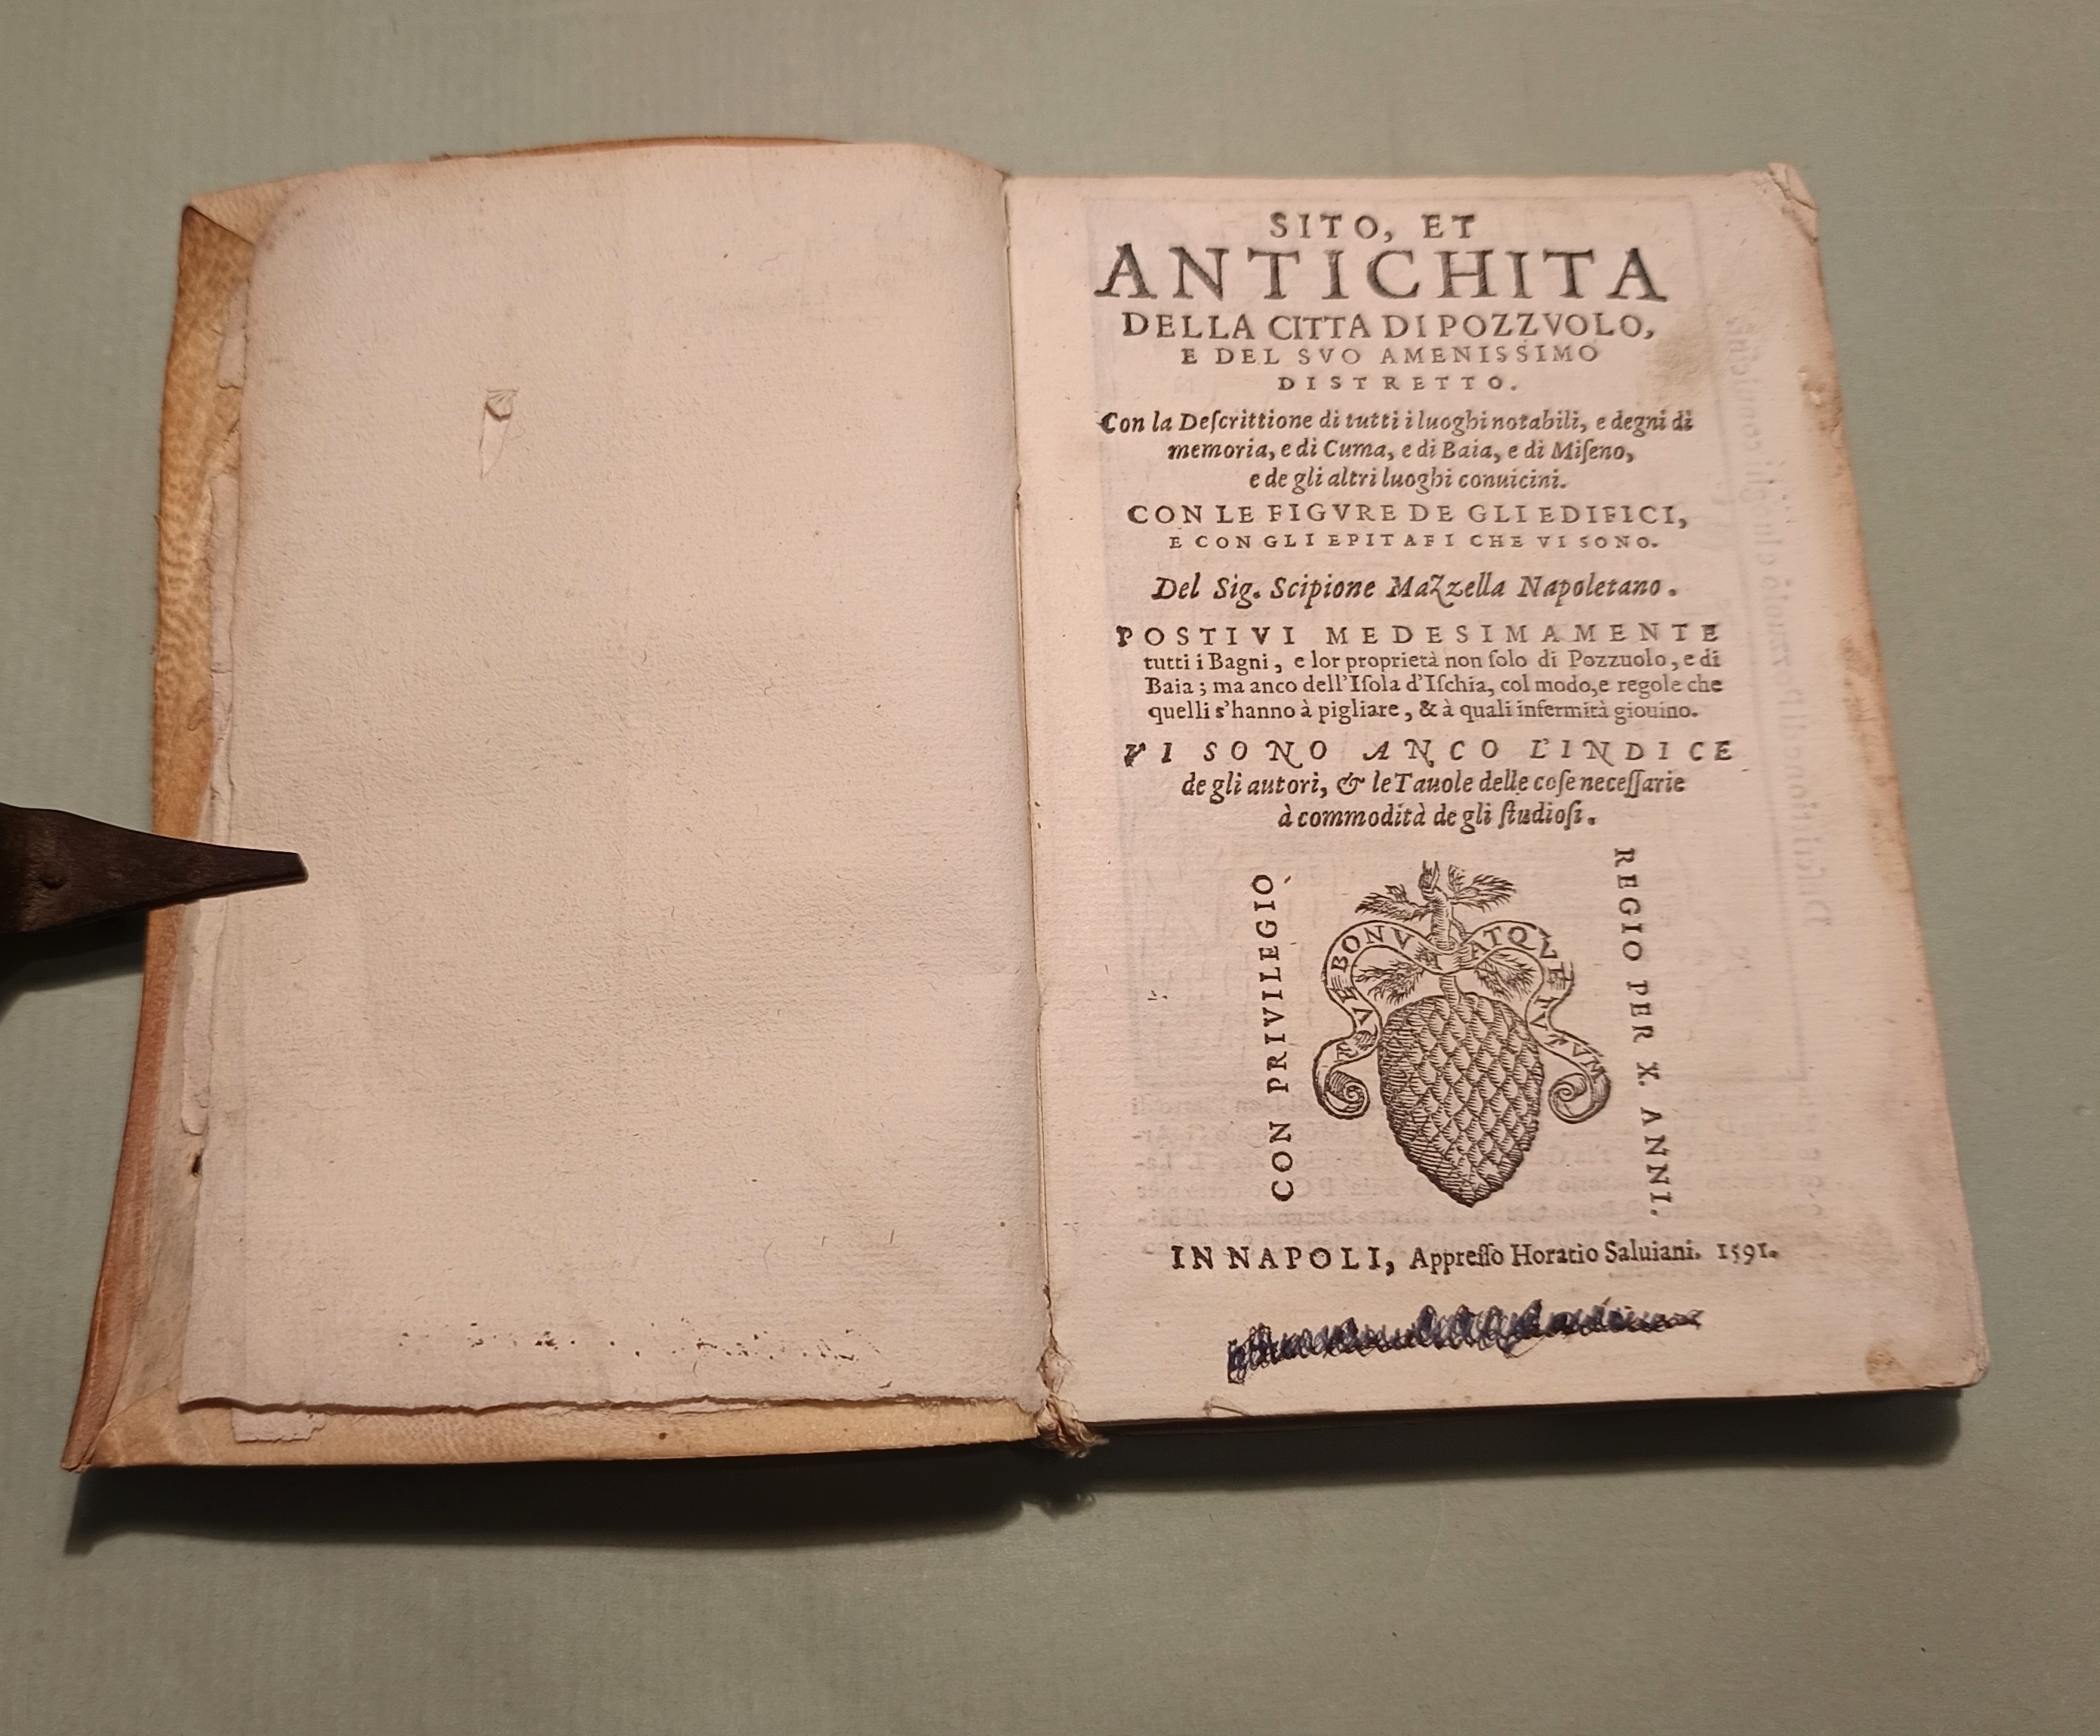 SITO, ET
ANTICHITA
DELLA CITTA DI POZZVOLO,
E DEL SVO AMENISSIMO
DISTRETTO.
Con la Deſcrittione di tutti i luoghi notabili, e degni di
memoria, e di Cuma, e di Baia, e di Miſeno,
e de gli altri luoghi conuicini.
CON LE FIGVRE DE GLI EDIFICI,
E CON GLI EPITAFI CHE VI SONO.
Del Sig. Scipione Mazzella Napoletano.
POSTIVI MEDESIMAMENTE
tutti i Bagni, e lor proprietà non ſolo di Pozzuolo, e di
Baia; ma anco dell'Iſola d'Iſchia, col modo, e regole che
quelli s'hanno à pigliare, & à quali infermità giouino.
VI SONO ANCO L'INDICE
de gli autori, & le Tauole delle coſe neceſſarie
à commodità de gli ſtudioſi.
CON PRIVILEGIO
BONV
REGIO PER X. ANNI.
IN NAPOLI, Appreſſo Horatio Saluiani. 1591.